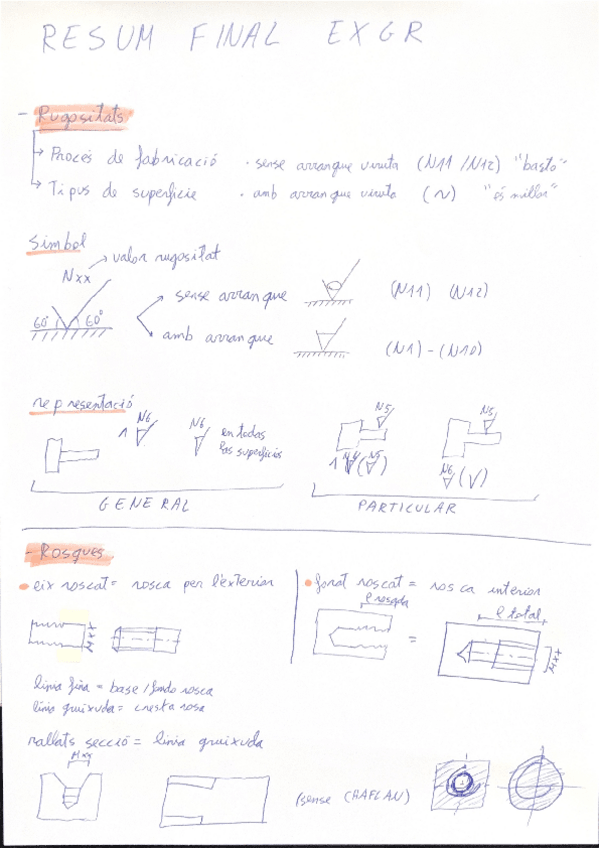 RESUM FINAL EXGR
- Rugositats
→ Procés de fabricació · sense arranque viruta (N11 /N12) "basto"
→ Tipus de superficie · amb arranque viruta (~) "és millor"
simbol
→ valor rugositat
Nxx
60° 60°
sense arranque (N11) (N12)
amb arranque (N1) - (N10)
representació
N6 N6 N5 N5
1 en todas
las superficies
1 N6 (N5) N6 (√)
GENERAL PARTICULAR
- Rosques
• eix roscat = rosca per l'exterior
• forat roscat = rosca interior
l roscada l total
Mxx = Mxx
linia fina = base / fondo rosca
linia gruixuda = cresta rosca
rallats secció = linia gruixuda
Mxx
(sense CHAFLAN)